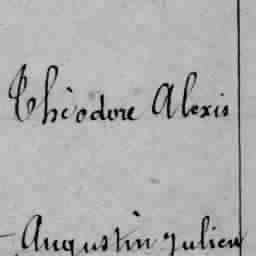 Théodore Alexis
Augustin Julien